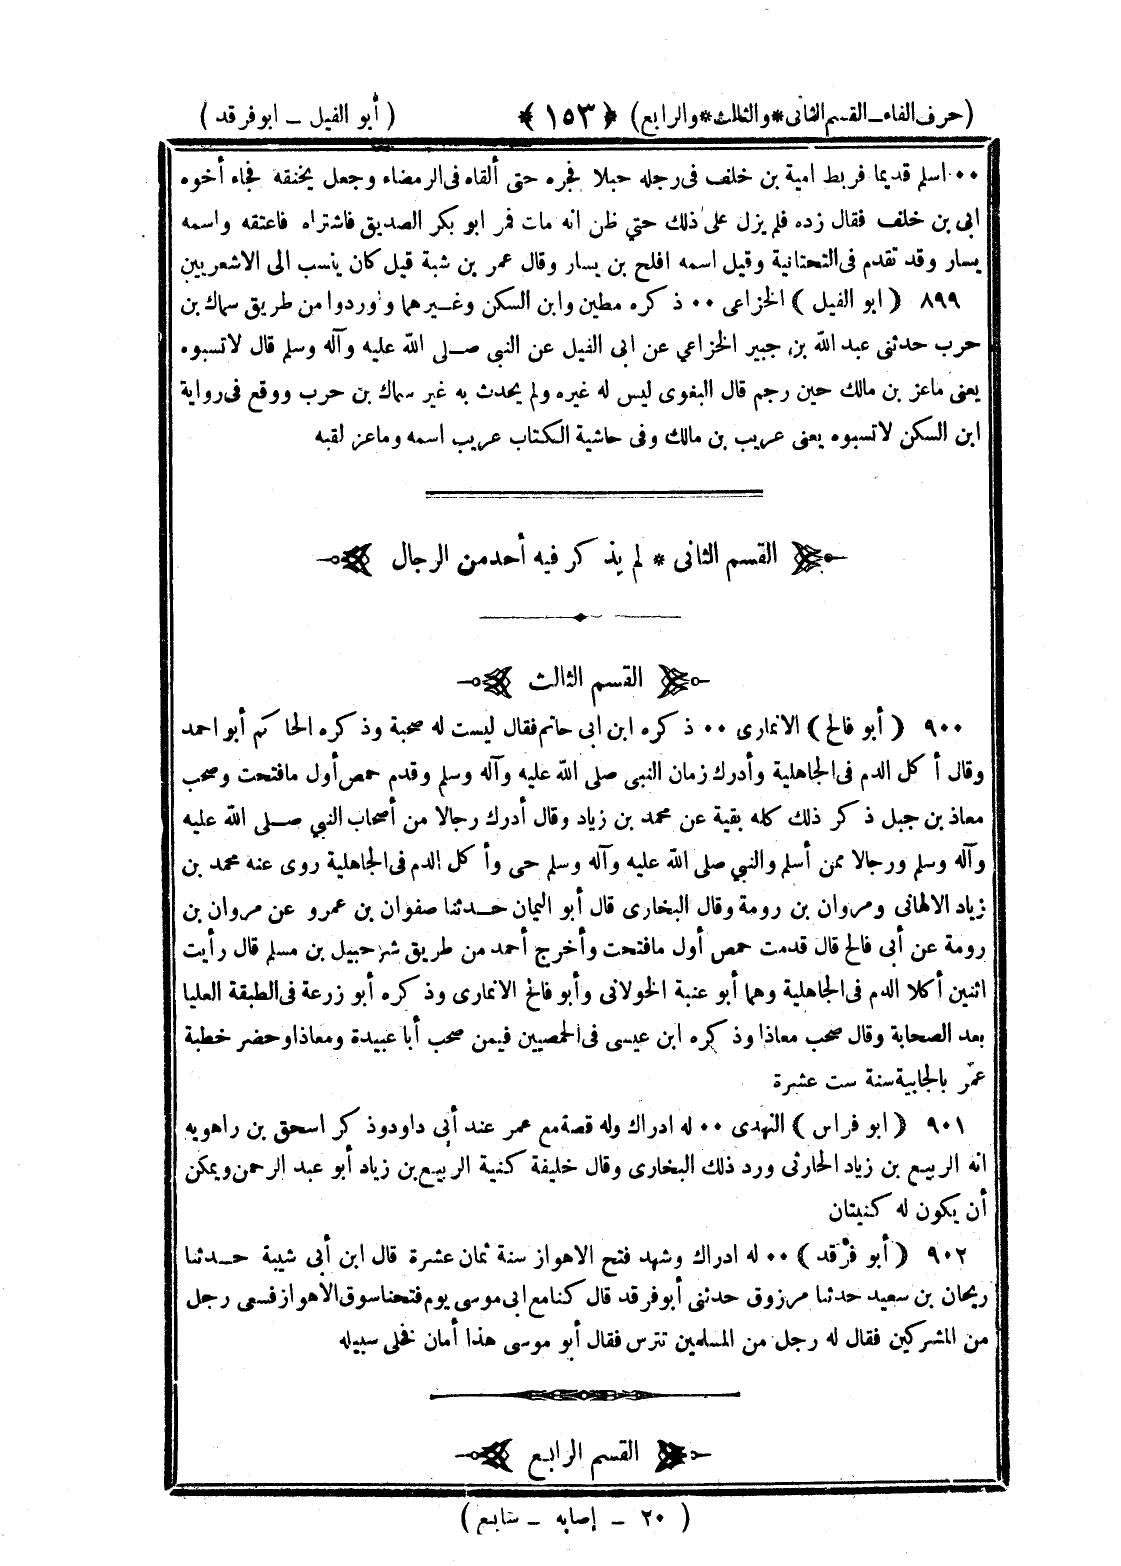 (حرف الفاء ـ القسم الثانى * والثالث * والرابع) ﴿ ١٥٣ ﴾ ( أبو الفيل ـ ابو فرقد )
٠٠ اسلم قديما فربط امية بن خلف فى رجله حبلا فجره حتى ألقاه فى الرمضاء وجعل يخنقه فجاء أخوه
ابى بن خلف فقال زده فلم يزل على ذلك حتي ظن انه مات فمر ابو بكر الصديق فاشتراه فاعتقه واسمه
يسار وقد تقدم فى التحتانية وقيل اسمه افلح بن يسار وقال عمر بن شبة قيل كان ينسب الى الاشعريين
٨٩٩ ( ابو الفيل ) الخزاعى ٠٠ ذكره مطين وابن السكن وغيرهما واوردوا من طريق سماك بن
حرب حدثنى عبد الله بن جبير الخزاعي عن ابى الفيل عن النبي صلى الله عليه وآله وسلم قال لاتسبوه
يعنى ماعز بن مالك حين رجم قال البغوى ليس له غيره ولم يحدث به غير سماك بن حرب ووقع فى رواية
ابن السكن لاتسبوه يعنى عريب بن مالك وفى حاشية الكتاب عريب اسمه وماعز لقبه
القسم الثانى * لم يذكر فيه أحد من الرجال
القسم الثالث
٩٠٠ ( أبو فالج ) الانمارى ٠٠ ذكره ابن ابى حاتم فقال ليست له صحبة وذكره الحاكم أبو احمد
وقال أكل الدم فى الجاهلية وأدرك زمان النبى صلى الله عليه وآله وسلم وقدم حمص أول مافتحت وصحب
معاذ بن جبل ذكر ذلك كله بقية عن محمد بن زياد وقال أدرك رجالا من أصحاب النبي صلى الله عليه
وآله وسلم ورجالا ممن أسلم والنبي صلى الله عليه وآله وسلم حى وأكل الدم فى الجاهلية روى عنه محمد بن
زياد الالهانى ومروان بن رومة وقال البخارى قال أبو اليمان حدثنا صفوان بن عمرو عن مروان بن
رومة عن أبى فالج قال قدمت حمص أول مافتحت وأخرج أحمد من طريق شرحبيل بن مسلم قال رأيت
اثنين أكلا الدم فى الجاهلية وهما أبو عنبة الخولانى وأبو فالج الانمارى وذكره أبو زرعة فى الطبقة العليا
بعد الصحابة وقال صحب معاذا وذكره ابن عيسى فى الحمصيين فيمن صحب أبا عبيدة ومعاذا وحضر خطبة
عمر بالجابية سنة ست عشرة
٩٠١ ( ابو فراس ) النهدى ٠٠ له ادراك وله قصة مع عمر عند أبي داود وذكر اسحق بن راهويه
انه الربيع بن زياد الحارثى ورد ذلك البخارى وقال خليفة كنية الربيع بن زياد أبو عبد الرحمن ويمكن
أن يكون له كنيتان
٩٠٢ ( أبو فرقد ) ٠٠ له ادراك وشهد فتح الاهواز سنة ثمان عشرة قال ابن أبي شيبة حدثنا
ريحان بن سعيد حدثنا مرزوق حدثنى أبو فرقد قال كنا مع ابى موسى يوم فتحنا سوق الاهواز فسعى رجل
من المشركين فقال له رجل من المسلمين تترس فقال أبو موسى هذا أمان فخلى سبيله
القسم الرابع
( ٢٠ ـ إصابه ـ سابع )